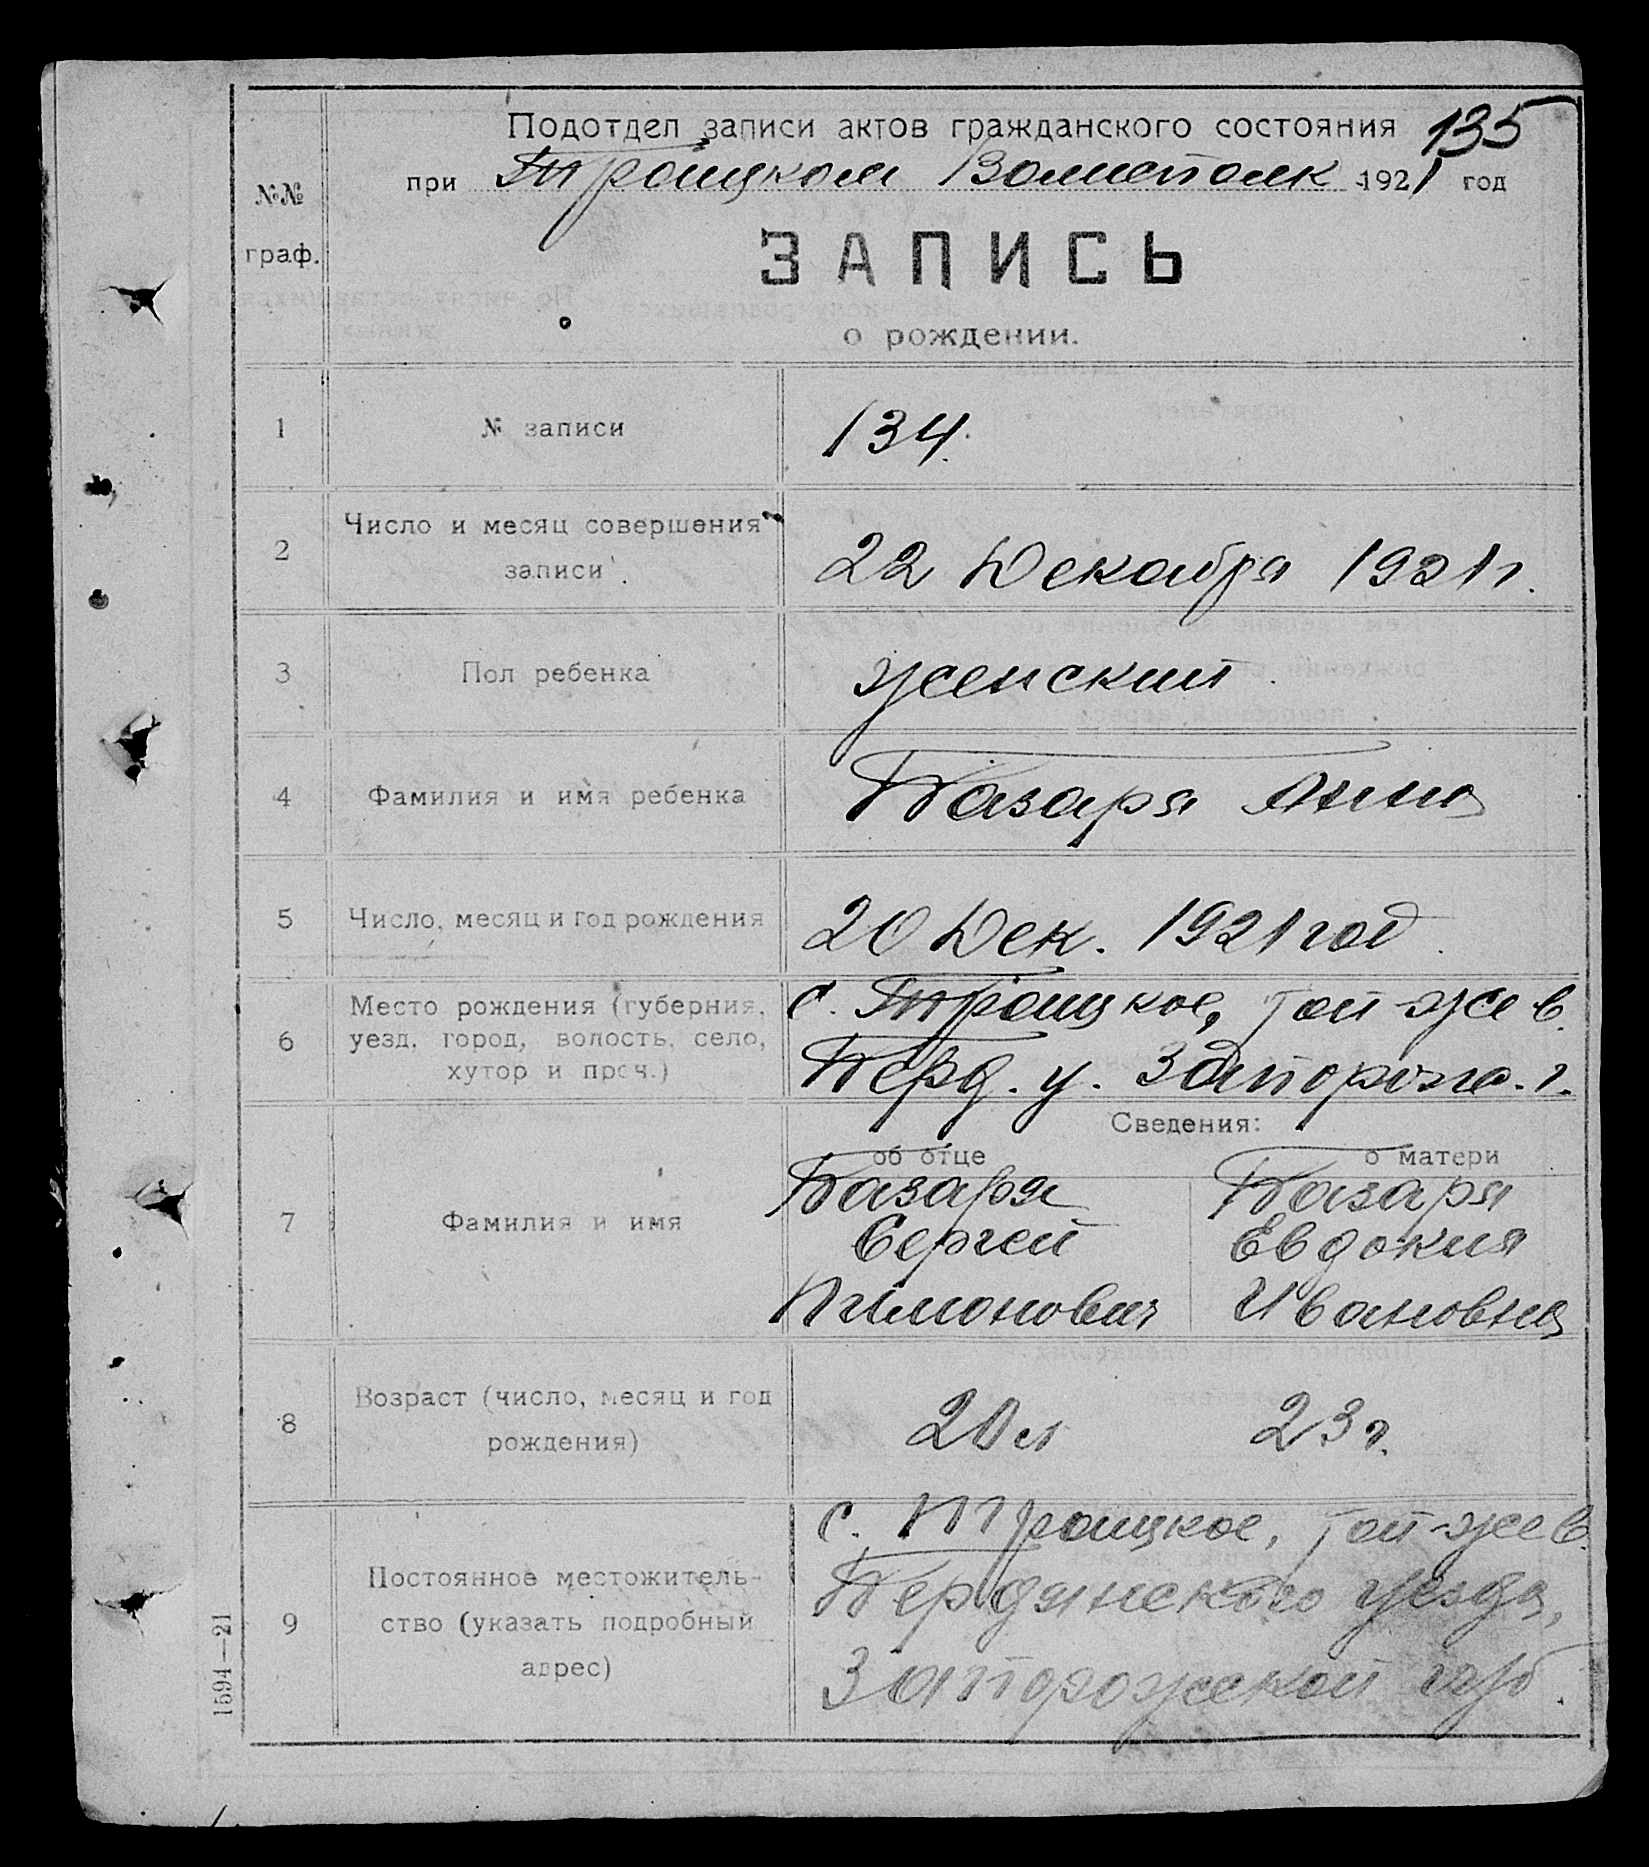 135
Подотдел записи актов гражданского состояния
при Троицком Волисполк 1921 год
№№ граф.
ЗАПИСЬ
о рождении.
1 № записи 134.
2 Число и месяц совершения записи 22 Декабря 1921 г.
3 Пол ребенка женский
4 Фамилия и имя ребенка Базаря Анна
5 Число, месяц и год рождения 20 Дек. 1921 год
6 Место рождения (губерния, с. Троицкое, той-же в.
уезд, город, волость, село, Берд. у. Запорож. г.
хутор и проч.)
Сведения:
об отце о матери
7 Фамилия и имя
Базаря Базаря
Сергей Евдокия
Ивановна
8 Возраст (число, месяц и год рождения) 20 л 23 г.
9 Постоянное местожитель- с. Троицкое, той-же в.
ство (указать подробный Бердянского уезда,
адрес) Запорожской губ.
1594—21